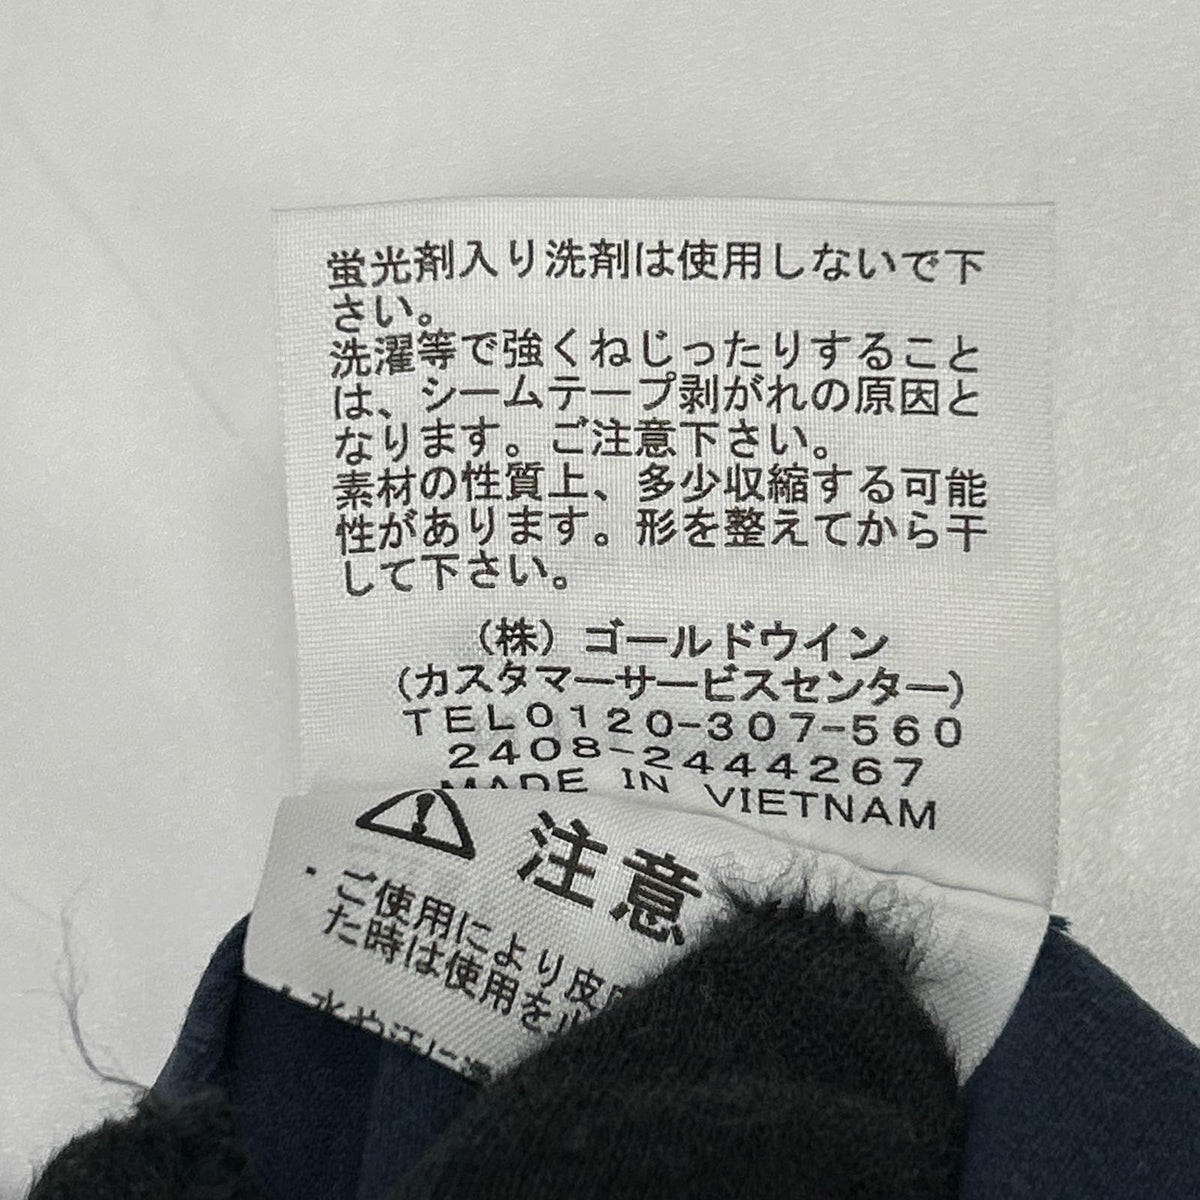 蛍光剤入り洗剤は使用しないで下
さい。
洗濯等で強くねじったりすること
は、シームテープ剥がれの原因と
なります。ご注意下さい。
素材の性質上、多少収縮する可能
性があります。形を整えてから干
して下さい。
(株)ゴールドウイン
(カスタマーサービスセンター)
TEL0120-307-560
2408-2444267
MADE IN VIETNAM
注意
・ご使用により皮
た時は使用を
・水や汗に